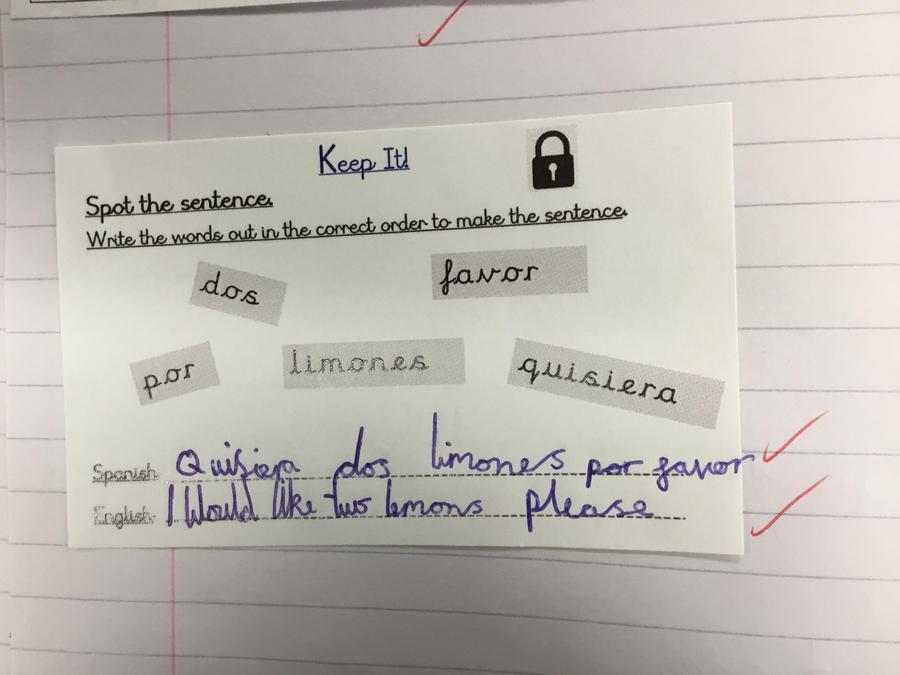 Keep It!
Spot the sentence.
Write the words out in the correct order to make the sentence.
dos favor
por limones quisiera
Spanish Quisiera dos limones por favor
English I Would like two lemons please